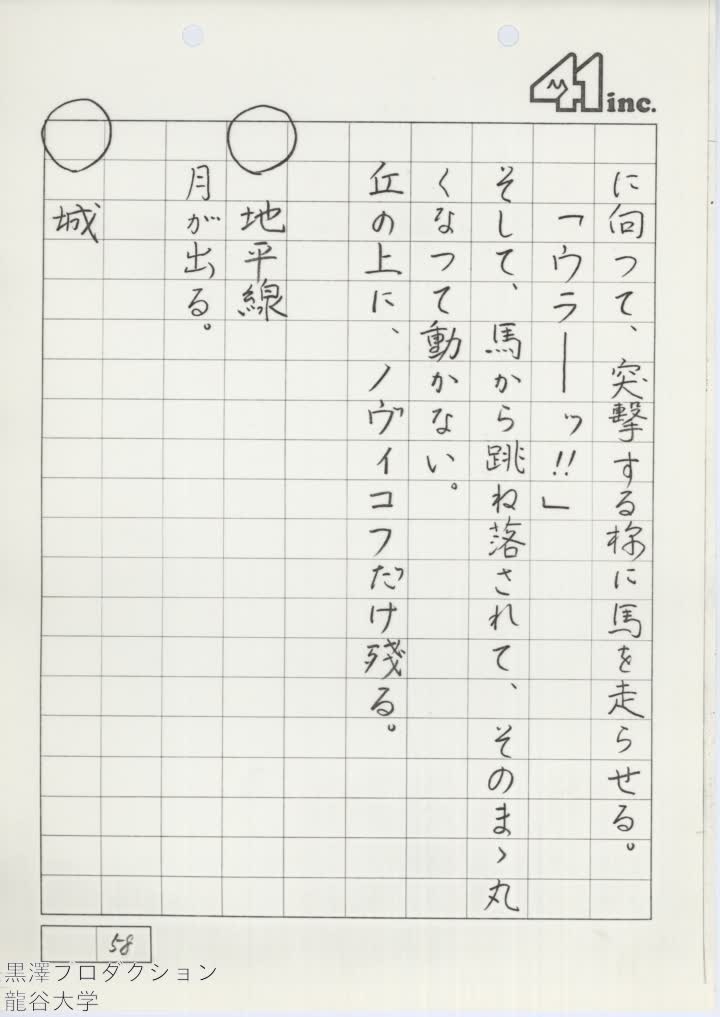 41 inc.
に向つて、突撃する様に馬を走らせる。
「ウラーーッ!!」
そして、馬から跳ね落されて、そのまゝ丸
くなつて動かない。
丘の上に、ノヴィコフだけ残る。
○ 地平線
月が出る。
○ 城
58
黒澤プロダクション
龍谷大学